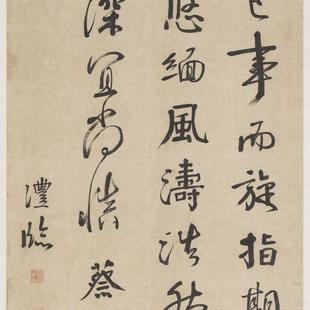 事而旋指期
悠緬風濤浩
深宜尚慎蔡
澧臨